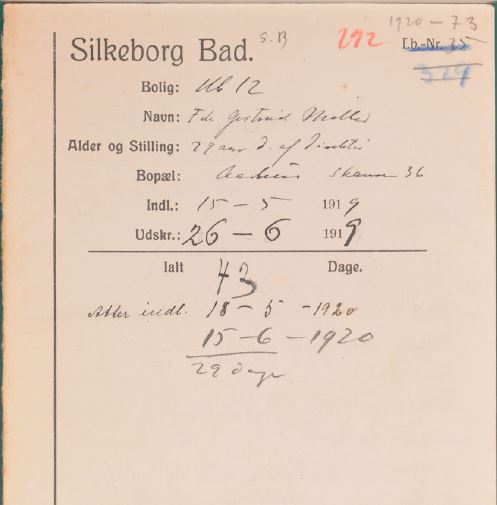 1920 - 73
Silkeborg Bad. S. B 292 Lb.-Nr. 25
327
Bolig: Ub 12
Navn: Frk Gertrud Møller
Alder og Stilling: 29 aar D. af
Bopæl: Aarhus 36
Indl.: 15 - 5 1919
Udskr.: 26 - 6 1919
Ialt 43 Dage.
Atter indl. 18 - 5 - 1920
15 - 6 - 1920
29 dage